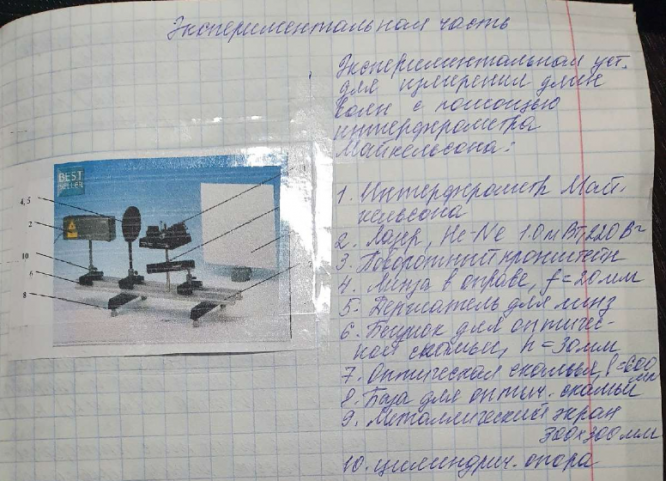 Экспериментальная часть
Экспериментальном уст.
для измерения длин
волн с помощью
интерферометра
Майкельсона:
1. Интерферометр Май-
кельсона
2. Лазер, He-Ne 1.0 мВт, 220 В~
3. Поворотный кронштейн
4. Линза в оправе, f=20мм
5. Держатель для линз
6. Бегунок для оптичес-
ной скамьи, h=30мм
7. Оптическая скамья, l=600
мм
8. База для оптич. скамьи
9. Металлический экран
300×300мм
10. цилиндрич. опора
BEST
SELLER
4, 5
2
10
6
8